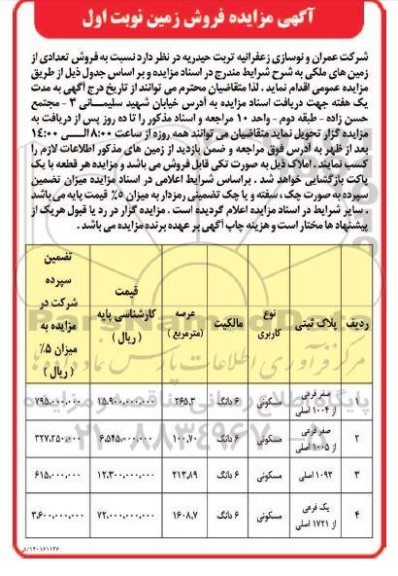 آگهی مزایده فروش زمین نوبت اول
شرکت عمران و نوسازی زعفرانیه تربت حیدریه در نظر دارد نسبت به فروش تعدادی از
زمین های ملکی به شرح شرایط مندرج در اسناد مزایده و بر اساس جدول ذیل از طریق
مزایده عمومی اقدام نماید . لذا متقاضیان محترم می توانند از تاریخ درج آگهی به مدت
یک هفته جهت دریافت اسناد مزایده به آدرس خیابان شهید سلیمـــانی ۳ - مجتمع
حسن زاده - طبقه دوم - واحد ۱۰ مراجعه و اسناد مذکور را تا ده روز پس از دریافت به
مزایده گزار تحویل نماید متقاضیان می توانند همه روزه از ساعت ۸:۰۰ الـــی ۱۴:۰۰
بعد از ظهر به آدرس فوق مراجعه و ضمن بازدید از زمین های مذکور اطلاعات لازم را
کسب نمایند . املاک ذیل به صورت تکی قابل فروش می باشد و مزایده هر قطعه با یک
پاکت بازگشایی خواهد شد . براساس شرایط اعلامی در اسناد مزایده میزان تضمین
سپرده به صورت چک ، سفته و یا چک تضمینی رمزدار به میزان ۵٪ قیمت پایه می باشد
. سایر شرایط در اسناد مزایده اعلام گردیده است . مزایده گزار در رد یا قبول هریک از
پیشنهاد ها مختار است و هزینه چاپ آگهی بر عهده برنده مزایده می باشد .
ردیف | پلاک ثبتی | نوع کاربری | مالکیت | عرصه (مترمربع) | قیمت کارشناسی پایه ( ریال ) | تضمین سپرده شرکت در مزایده به میزان ۵٪ ( ریال )
۱ | صفر فرعی از ۱۰۰۴ اصلی | مسکونی | ۶ دانگ | ۲۶۵٫۳ | ۱۵٫۹۰۰٫۰۰۰٫۰۰۰ | ۷۹۵٫۰۰۰٫۰۰۰
۲ | صفر فرعی از ۱۰۰۵ اصلی | مسکونی | ۶ دانگ | ۱۰۰٫۷۰ | ۶٫۵۴۵٫۰۰۰٫۰۰۰ | ۳۲۷٫۲۵۰٫۰۰۰
۳ | ۱۰۹۳ اصلی | مسکونی | ۶ دانگ | ۲۱۳٫۸۹ | ۱۲٫۳۰۰٫۰۰۰٫۰۰۰ | ۶۱۵٫۰۰۰٫۰۰۰
۴ | یک فرعی از ۱۷۲۱ اصلی | مسکونی | ۶ دانگ | ۱۶۰۸٫۷ | ۷۲٫۰۰۰٫۰۰۰٫۰۰۰ | ۳٫۶۰۰٫۰۰۰٫۰۰۰
ParsNamadData
مرکز فرآوری اطلاعات پارس نماد داده ها
پایگاه اطلاع رسانی مناقصه و مزایده
۰۲۱-۸۸۳۴۹۶۷۰